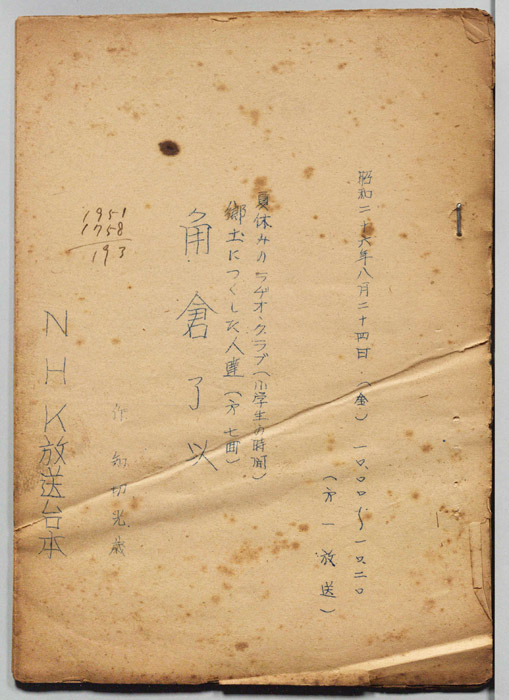 昭和二十六年八月二十四日(金)一〇.〇〇〜一〇.二〇
(才一放送)
夏休みのラヂオ・クラブ(小学生の時間)
郷土につくした人達(才七回)
角倉了以
作 知切光歳
NHK放送台本
1951
1758
193
1